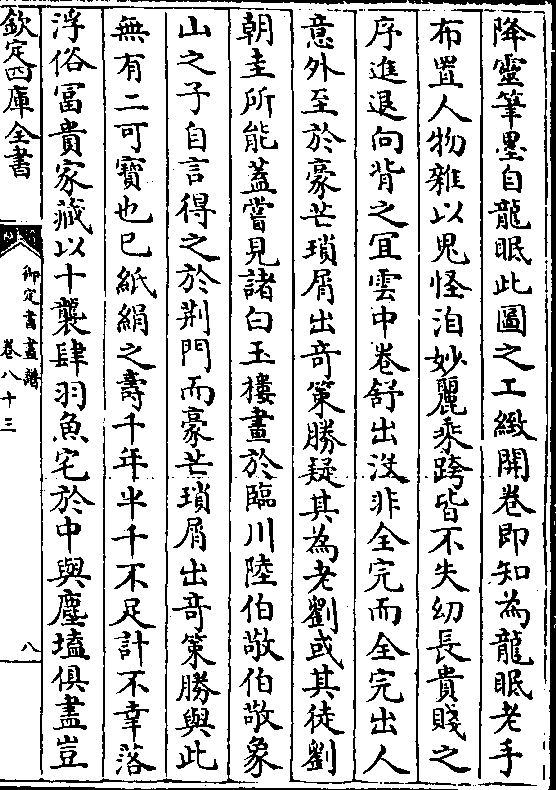 降靈筆墨自龍眠此圖之工緻開卷即知為龍眠老手
布置人物雜以鬼怪洎妙麗乘跨皆不失幼長貴賤之
序進退向背之宜雲中卷舒出沒非全完而全完出人
意外至於豪芒瑣屑出奇策勝疑其為老劉或其徒劉
朝圭所能葢嘗見諸白玉樓畫於臨川陸伯敬伯敬象
山之子自言得之於荆門而豪芒瑣屑出奇策勝與此
無有二可寶也已紙絹之壽千年半千不足計不幸落
浮俗富貴家藏以十襲肆羽魚宅於中與塵壒俱盡豈
欽定四庫全書
御定書畫譜
卷八十三
八